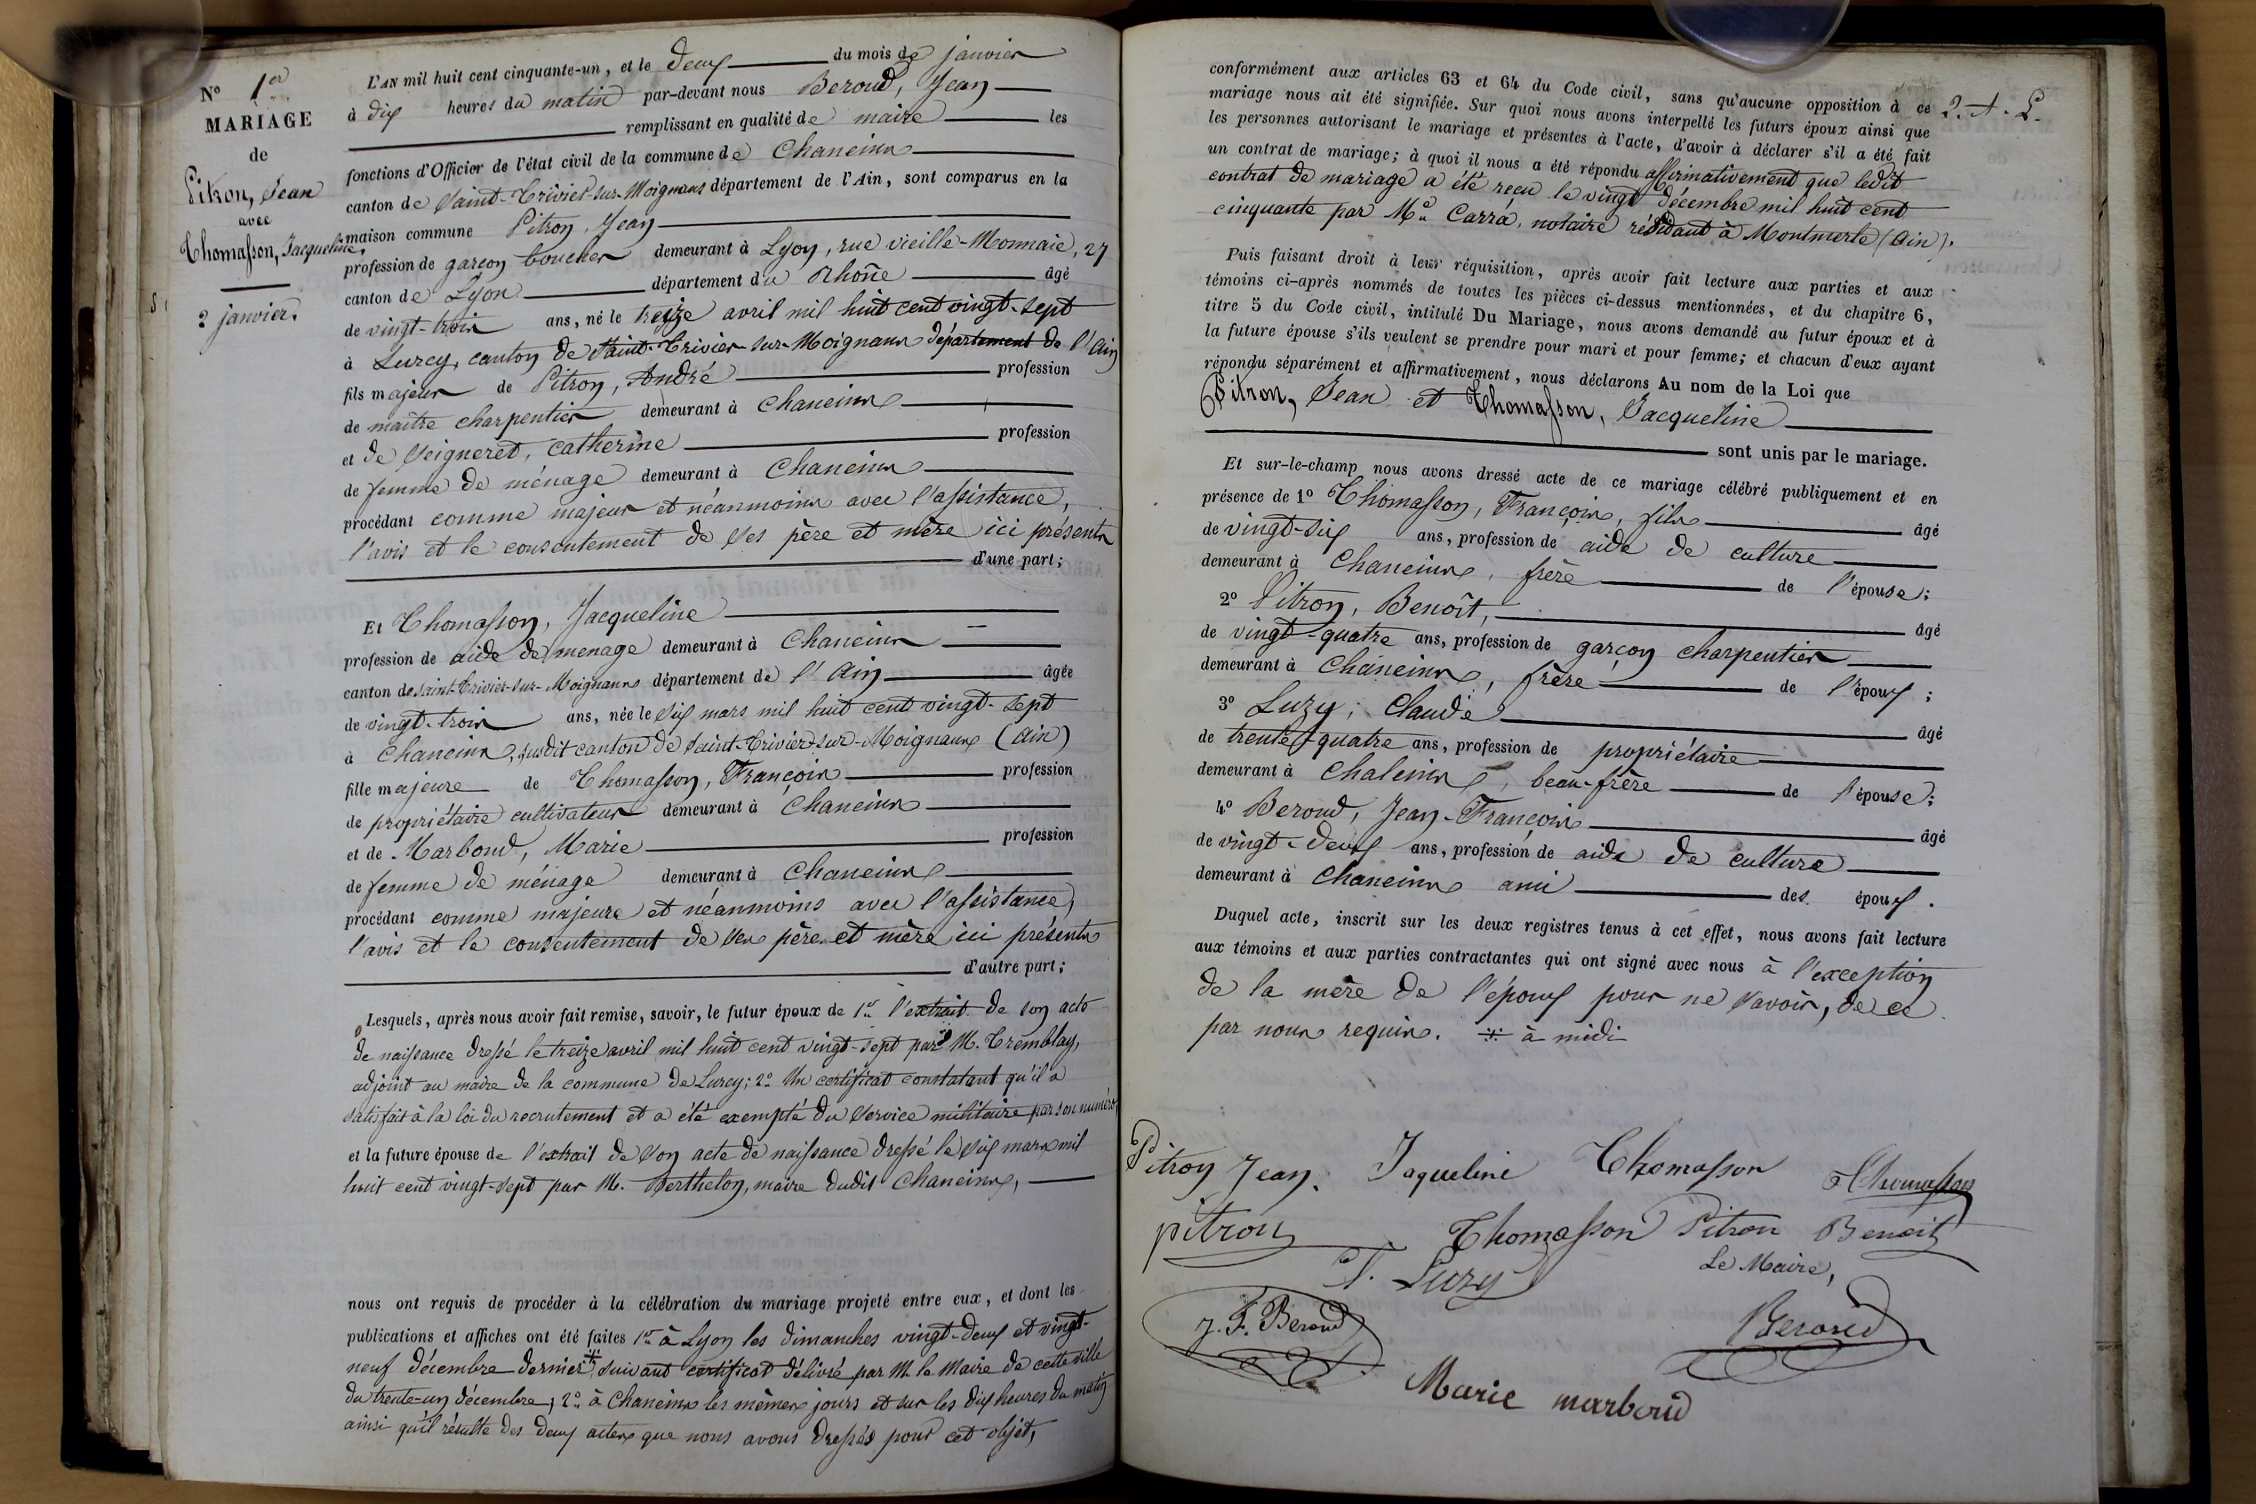 N° 1er
MARIAGE
de
Pitron, Jean
avec
Thomasson, Jacqueline.
2 janvier.
L'AN mil huit cent cinquante-un, et le deux du mois de janvier
à dix heures du matin par-devant nous Beroud, Jean
remplissant en qualité de maire les
fonctions d'Officier de l'état civil de la commune de Chaneins
canton de Saint-Trivier-sur-Moignans département de l'Ain, sont comparus en la
maison commune Pitron, Jean
profession de garçon boucher demeurant à Lyon, rue vieille-Monnaie, 27
canton de Lyon département du Rhône âgé
de vingt-trois ans, né le treize avril mil huit cent vingt-sept
à Lurcy, canton de Saint-Trivier-sur-Moignans département de l'Ain
fils majeur de Pitron, André profession
de maître charpentier demeurant à Chaneins
et de Seigneret, Catherine profession
de femme de ménage demeurant à Chaneins
procédant comme majeur et néanmoins avec l'assistance,
l'avis et le consentement de ses père et mère ici présents
d'une part;
Et Thomasson, Jacqueline
profession de aide de menage demeurant à Chaneins
canton de Saint-Trivier-sur-Moignans département de l'Ain âgée
de vingt-trois ans, née le six mars mil huit cent vingt-sept
à Chaneins, susdit canton de Saint-Trivier-sur-Moignans (Ain)
fille majeure de Thomasson, François profession
de propriétaire cultivateur demeurant à Chaneins
et de Marboud, Marie profession
de femme de ménage demeurant à Chaneins
procédant comme majeure et néanmoins avec l'assistance,
l'avis et le consentement de ses père et mère ici présents
d'autre part;
Lesquels, après nous avoir fait remise, savoir, le futur époux de 1° l'extrait de son acte
de naissance dressé le treize avril mil huit cent vingt-sept par M. Tremblay,
adjoint au maire de la commune de Lurcy; 2° Un certificat constatant qu'il a
satisfait à la loi du recrutement et a été exempté du service militaire par son numéro
et la future épouse de l'extrait de son acte de naissance dressé le six mars mil
huit cent vingt-sept par M. Berthelon, maire dudit Chaneins,
nous ont requis de procéder à la célébration du mariage projeté entre eux, et dont les
publications et affiches ont été faites 1° à Lyon les dimanches vingt-deux et vingt-
neuf décembre dernier suivant certificat délivré par M. le Maire de cette ville
du trente-un décembre, 2° à Chaneins les mêmes jours et sur les dix heures du matin
ainsi qu'il résulte des deux actes que nous avons dressés pour cet objet,
conformément aux articles 63 et 64 du Code civil, sans qu'aucune opposition à ce
mariage nous ait été signifiée. Sur quoi nous avons interpellé les futurs époux ainsi que
les personnes autorisant le mariage et présentes à l'acte, d'avoir à déclarer s'il a été fait
un contrat de mariage; à quoi il nous a été répondu affirmativement que ledit
contrat de mariage a été reçu le vingt décembre mil huit cent
cinquante par Me Carra, notaire résidant à Montmerle (Ain).
Puis faisant droit à leur réquisition, après avoir fait lecture aux parties et aux
témoins ci-après nommés de toutes les pièces ci-dessus mentionnées, et du chapitre 6,
titre 5 du Code civil, intitulé Du Mariage, nous avons demandé au futur époux et à
la future épouse s'ils veulent se prendre pour mari et pour femme; et chacun d'eux ayant
répondu séparément et affirmativement, nous déclarons Au nom de la Loi que
Pitron, Jean et Thomasson, Jacqueline
sont unis par le mariage.
Et sur-le-champ nous avons dressé acte de ce mariage célébré publiquement et en
présence de 1° Thomasson, François, fils âgé
de vingt-six ans, profession de aide de culture
demeurant à Chaneins, frère de l'épouse;
2° Pitron, Benoît, âgé
de vingt-quatre ans, profession de garçon charpentier
demeurant à Chaneins, frère de l'époux;
3° Luzy, Claude âgé
de trente-quatre ans, profession de propriétaire
demeurant à Chaleins, beau-frère de l'épouse;
4° Beroud, Jean-François âgé
de vingt-deux ans, profession de aide de culture
demeurant à Chaneins ami des époux.
Duquel acte, inscrit sur les deux registres tenus à cet effet, nous avons fait lecture
aux témoins et aux parties contractantes qui ont signé avec nous à l'exception
de la mère de l'époux pour ne savoir, de ce
par nous requis. à midi
Pitron Jean. Jaqueline Thomasson Thomasson
pitron Thomasson Pitron Benoit
C. Luzy Le Maire,
J. F. Beroud Beroud
Marie marboud